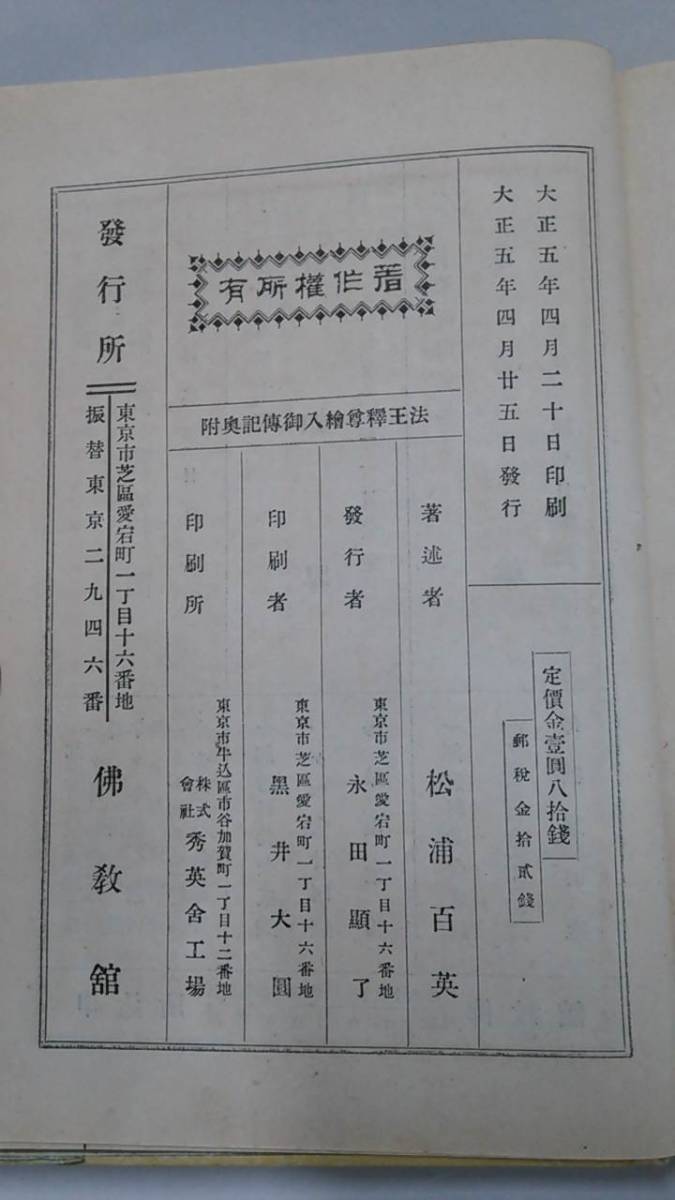 大正五年四月二十日印刷
大正五年四月廿五日發行
定價金壹圓八拾錢
郵稅金拾貳錢
著作權所有
法王釋尊繪入御傳記奧附
著述者 松浦百英
發行者 東京市芝區愛宕町一丁目十六番地 永田顯了
印刷者 東京市芝區愛宕町一丁目十六番地 黑井大圓
印刷所 東京市牛込區市谷加賀町一丁目十二番地 株式會社 秀英舍工場
發行所 東京市芝區愛宕町一丁目十六番地 振替東京二九四六番 佛敎舘